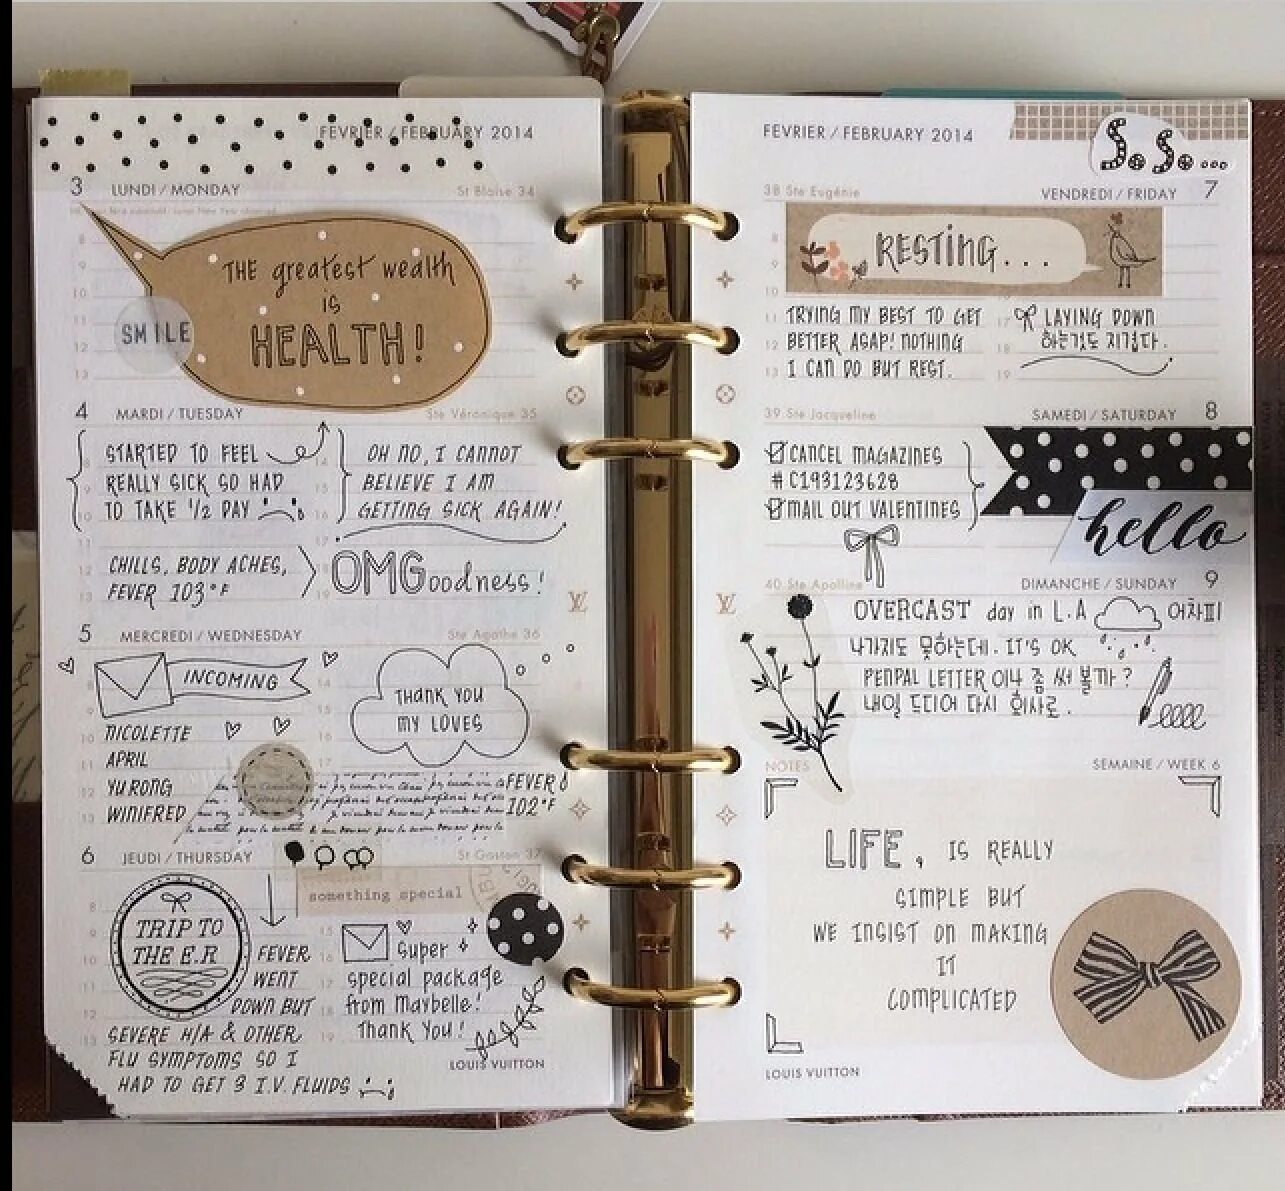 FEVRIER / FEBRUARY 2014
3 LUNDI / MONDAY St Blaise 34
THE greatest wealth
is
HEALTH!
SMILE
4 MARDI / TUESDAY Ste Véronique 35
STARTED TO FEEL
REALLY SICK SO HAD
TO TAKE 1/2 DAY
OH NO, I CANNOT
BELIEVE I AM
GETTING SICK AGAIN!
CHILLS, BODY ACHES,
FEVER 103°F
OMGoodness!
5 MERCREDI / WEDNESDAY Ste Agathe 36
INCOMING
NICOLETTE
APRIL
YURONG
WINIFRED
THANK YOU
MY LOVES
FEVER
102°F
6 JEUDI / THURSDAY St Gaston 37
something special
TRIP TO
THE E.R
FEVER
WENT
DOWN BUT
SEVERE H/A & OTHER
FLU SYMPTOMS SO I
HAD TO GET 3 I.V. FLUIDS
Super
special package
from Maybelle!
Thank You!
LOUIS VUITTON
FEVRIER / FEBRUARY 2014
So So...
38 Ste Eugénie VENDREDI / FRIDAY 7
RESTING...
TRYING MY BEST TO GET
BETTER ASAP! NOTHING
I CAN DO BUT REST.
LAYING DOWN
하는것도 지겹다.
39 Ste Jacqueline SAMEDI / SATURDAY 8
CANCEL MAGAZINES
# C193123628
MAIL OUT VALENTINES
hello
40 Ste Apolline DIMANCHE / SUNDAY 9
OVERCAST day in L.A 어차피
나가지도 못하는데. IT'S OK
PENPAL LETTER 이나 좀 써 볼까?
내일 드디어 다시 회사로.
NOTES SEMAINE / WEEK 6
LIFE, IS REALLY
SIMPLE BUT
WE INSIST ON MAKING
IT
COMPLICATED
LOUIS VUITTON